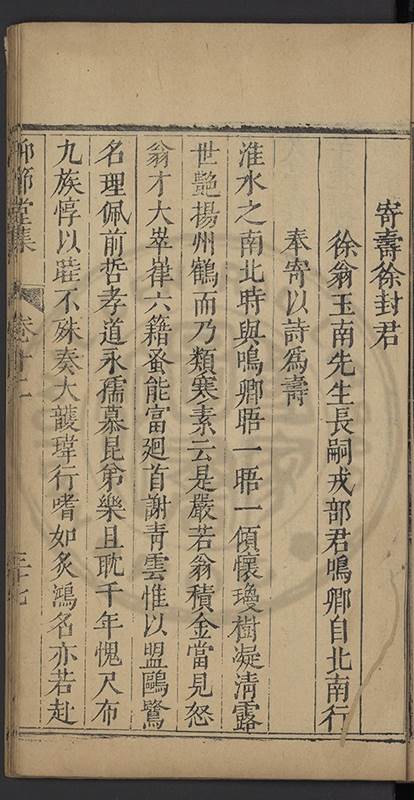 寄壽徐封君
徐翁玉南先生長嗣戎部君鳴卿自北南行
奉寄以詩為壽
淮水之南北時與鳴卿晤一晤一傾懷瓊樹凝清露
世艷揚州鶴而乃類寒素云是嚴若翁積金當見怒
翁才大崒嵂六籍蚤能富廻首謝青雲惟以盟鷗鷺
名理佩前哲孝道永孺慕昆弟樂且耽千年愧尺布
九族惇以䟽不殊奏大頀瑋行嗜如炙鴻名亦若赴
節堂集
卷十二